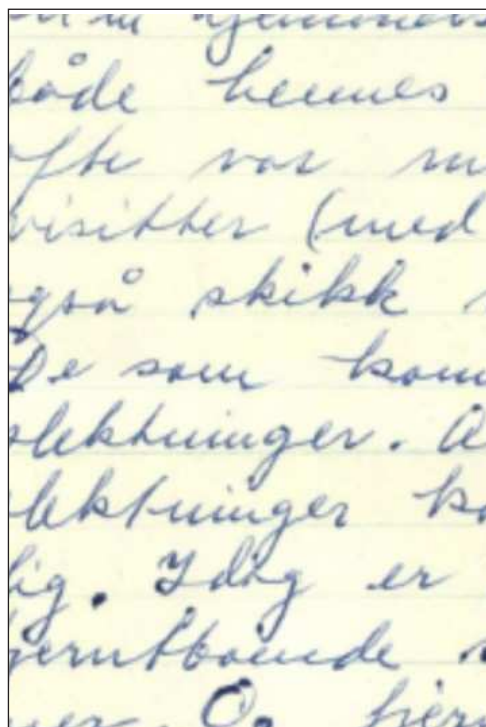 både hennes
ofte var
visitter (med
også skikk
De som kom
slektninger. Å
slektninger ko
lig. Idag er
fjerntboende
Og